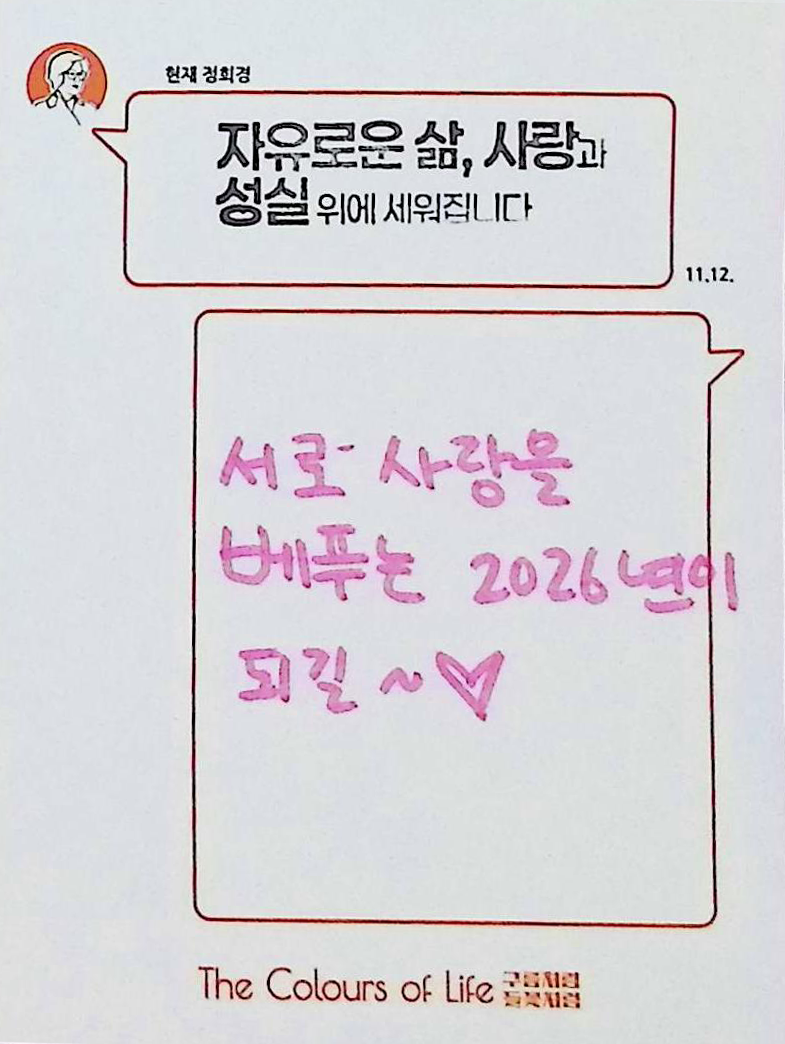 현재 정희경
자유로운 삶, 사랑과
성실 위에 세워집니다
11.12.
서로 사랑을
베푸는 2026년이
되길 ~♡
The Colours of Life 구름처럼
들꽃처럼